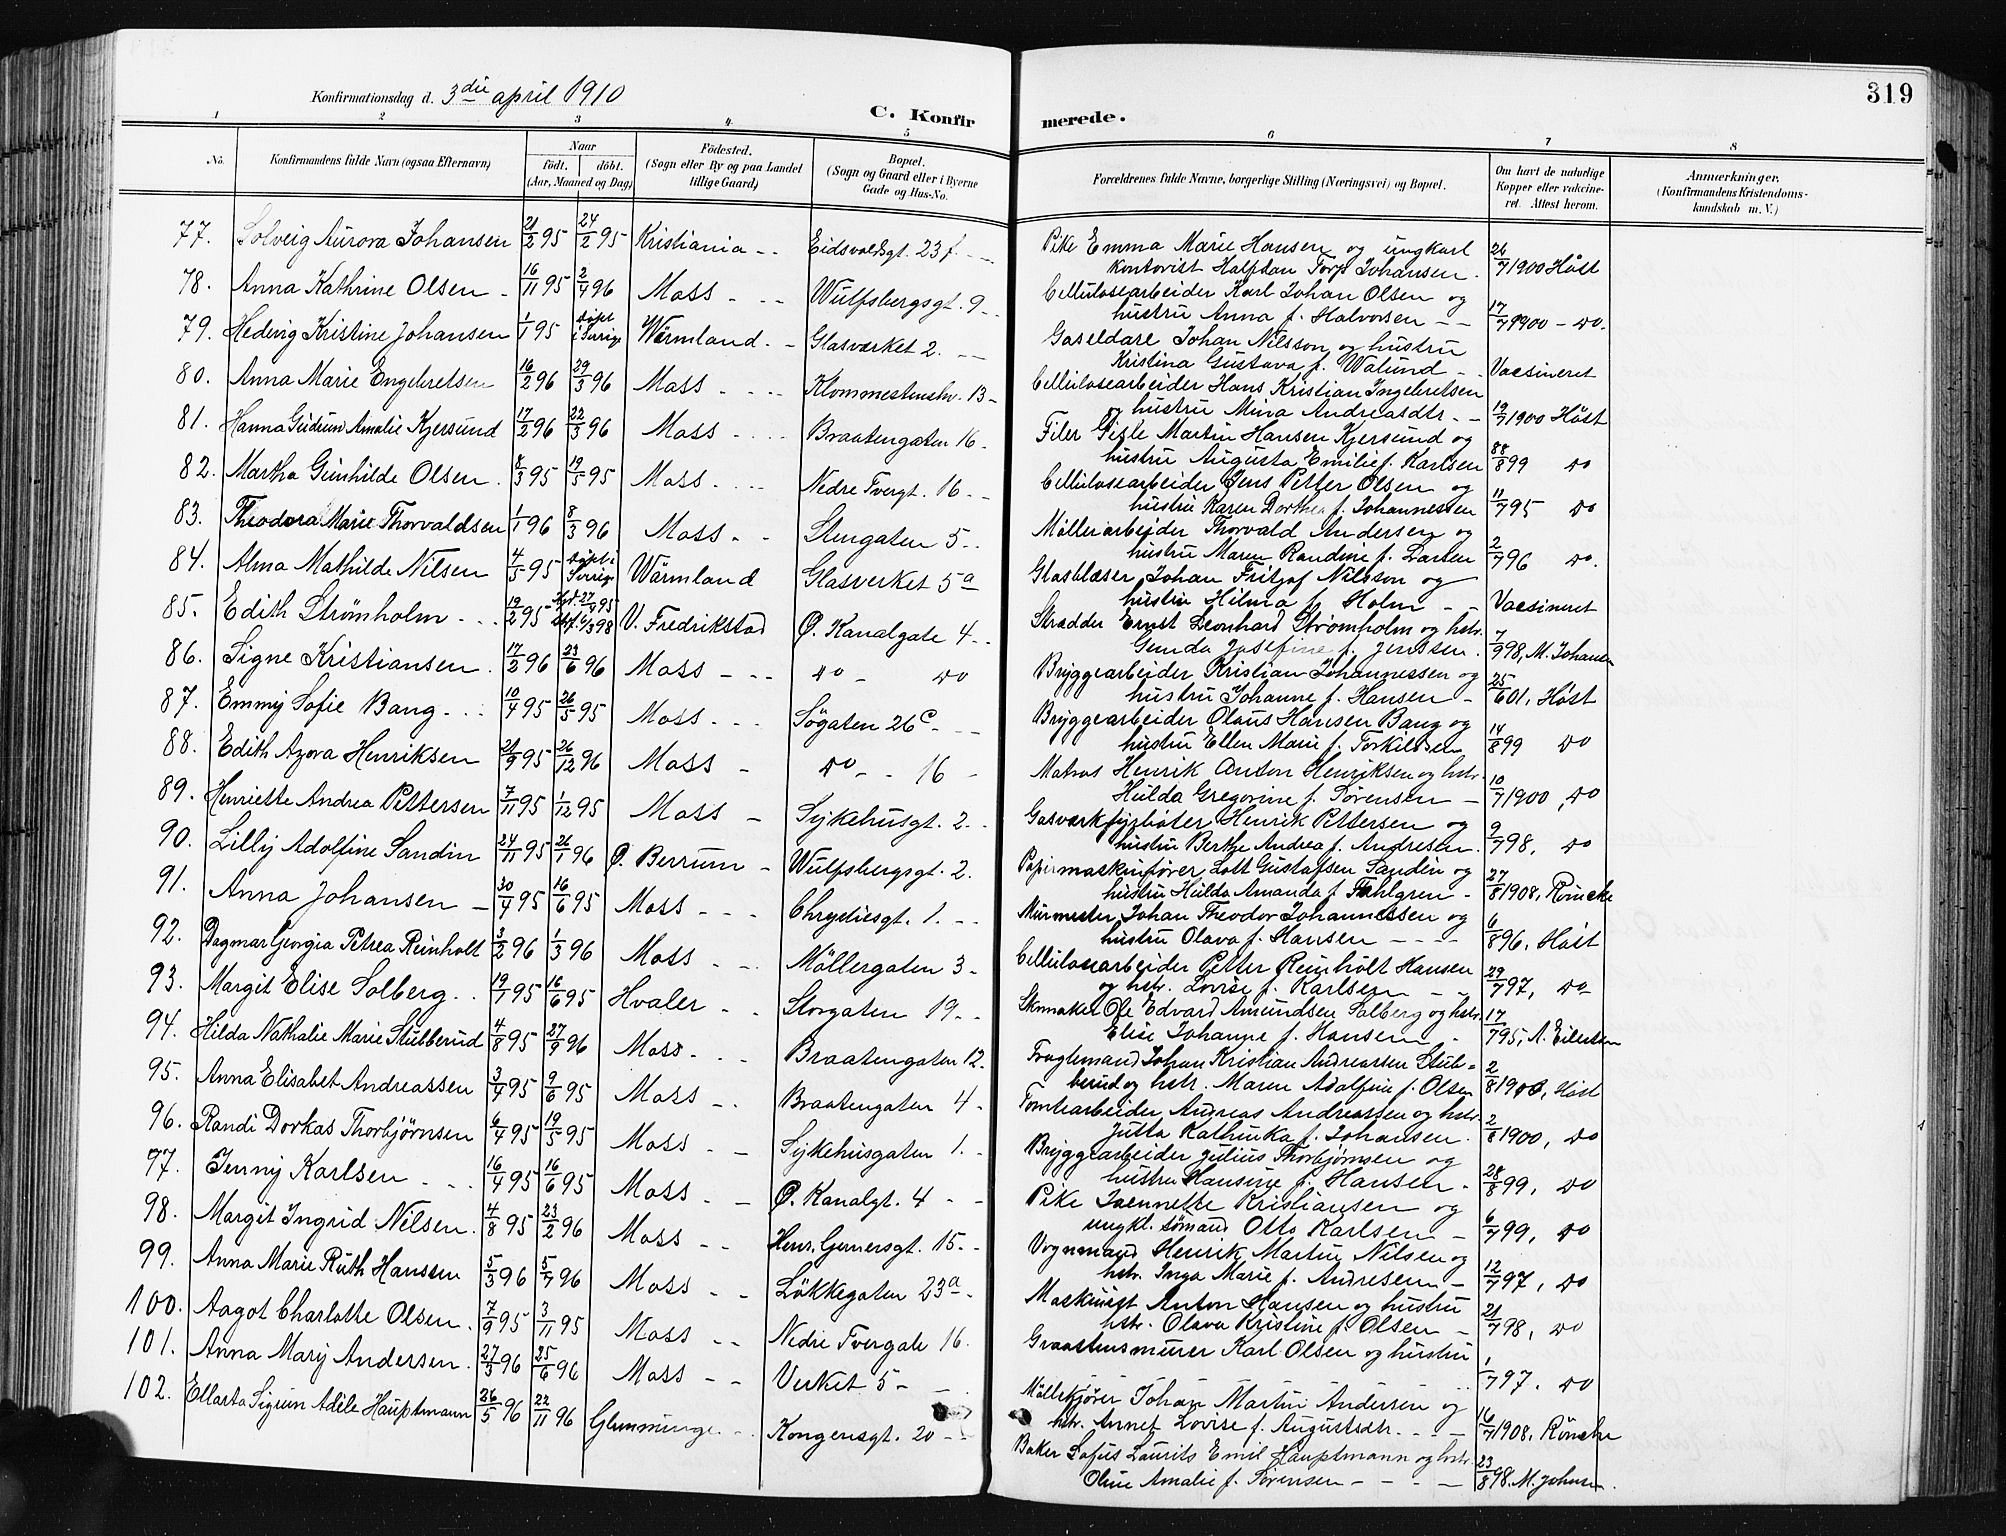 319
Konfirmationsdag d. 3die april 1910
C. Konfir merede.
1 2 3 4 5 6 7 8
No. Konfirmandens fulde Navn (ogsaa Efternavn) Naar født. døbt. (Aar, Maaned og Dag) Fødested. (Sogn eller By og paa Landet tillige Gaard) Bopæl. (Sogn og Gaard eller i Byerne Gade og Hus-No. Forældrenes fulde Navne, borgerlige Stilling (Næringsvei) og Bopæl. Om havt de naturlige Kopper eller vakcineret. Attest herom. Anmærkninger. (Konfirmandens Kristendomskundskab m. V.)
77. Solveig Aurora Johansen 21/2 95 24/2 95 Kristiania Eidsvoldsgt. 23 f. Pike Emma Marie Hansen og ungkarl
kontorist Halfdan Torp Johansen. 26/7 1900 Høst
78. Anna Kathrine Olsen 16/11 95 2/4 96 Moss Wulfsbergsgt. 9 Cellulosearbeider Karl Johan Olsen og
hustru Anna f. Halvorsen 17/7 1900 - do.
79. Hedvig Kristine Johansen 1/1 95 døpt i Sverige Wärmland Glasværket 2. Gaseldare Johan Nilsson og hustru
Kristina Gustava f. Walund Vacsineret
80. Anna Marie Engebretsen 16/2 96 29/3 96 Moss Klommestensbr. 13 Cellulosearbeider Hans Kristian Ingebretsen
og hustru Mina Andreasdtr. 19/7 1900 Høst
81. Hanna Gudrun Amalie Kjersund 17/2 96 22/3 96 Moss Braatengaten 16 Filer Gisle Martin Hansen Kjersund og
hustru Augusta Emilie f. Karlsen 28/8 99 do
82. Martha Gunhilde Olsen 8/3 95 19/5 95 Moss Nedre Tvergt. 16 Cellulosearbeider Jens Petter Olsen og
hustru Karen Dorthea f. Johannessen 11/7 95 do
83. Theodora Marie Thorvaldsen 1/1 96 8/3 96 Moss Stengaten 5 Møllerarbeider Thorvald Andersen og
hustru Maren Randine f. Larsen 2/7 96 do.
84. Alma Mathilde Nilsen 4/5 95 døpt i Sverige Wärmland Glasverket 5a Glasblæser Johan Fritjof Nilsson og
hustru Hilma f. Holm Vacsineret
85. Edith Strømholm 19/2 95 V. Fredrikstad Ø. Kanalgate 4 Skrædder Ernst Leonhard Strømholm og hstr.
Gunda Josefine f. Jenssen. 7/9 98, M. Johansen
86. Signe Kristiansen 17/2 96 23/6 96 Moss do do Bryggearbeider Kristian Johannessen og
hustru Johanne f. Hansen 25/6 01, Høst
87. Emmy Sofie Bang 10/4 95 26/5 95 Moss Søgaten 26c Bryggearbeider Olaus Hansen Bang og
hustru Ellen Marie f. Torkildsen 14/8 99 do
88. Edith Azora Henriksen 21/9 95 26/12 96 Moss do 16 Matros Henrik Anton Henriksen og hstr.
Hulda Gregorine f. Sørensen 10/7 1900, do
89. Henriette Andrea Pettersen 7/11 95 1/12 95 Moss Sykehusgt. 2. Gasværksfyrbøter Henrik Pettersen og
hustru Berthe Andrea f. Andresen. 9/7 98, do
90. Lilly Adolfine Sandin 24/11 95 26/1 96 Ø. Berrum Wulfsbergsgt. 2. Papirmaskinfører Lott Gustafsen Sandin og
hustru Hulda Amanda f. Fahlgren 27/8 1908, Röncke
91. Anna Johansen 30/4 95 16/6 95 Moss Chrystiesgt. 1. Murmester Johan Theodor Johannessen og
hustru Olava f. Hansen 6/8 96. Høst
92. Dagmar Georgia Petrea Reinholt 3/2 96 1/3 96 Moss Møllergaten 3 Cellulosearbeider Petter Reinholt Hansen
og hstr. Lovise f. Karlsen 29/7 97, do
93. Margit Elise Solberg 19/1 95 16/6 95 Hvaler Storgaten 19 Skomaker Ole Edvard Amundsen Solberg og hstr.
Elise Johanne f. Hansen 17/7 95, A. Eilertsen
94. Hilda Nathalie Marie Stubberud 4/8 95 27/9 96 Moss Braatengaten 12. Fragtemand Johan Kristian Andreassen Stub-
berud og hstr. Maren Adolfine f. Olsen 2/8 1900, Høst
95. Anna Elisabet Andreassen 3/4 95 9/6 95 Moss Braatengaten 4 Tomtearbeider Andreas Andreassen og hstr.
Jutta Kathinka f. Johansen. 2/8 1900, do
96. Randi Dorkas Thorbjørnsen 6/4 95 19/5 95 Moss Sykehusgaten 1. Bryggearbeider Julius Thorbjørnsen og
hustru Hansine f. Hansen 28/8 99, do
77. Jenny Karlsen 16/4 95 16/6 95 Moss Ø. Kanalgt. 4 Pike Jeennette Kristiansen og
ungkl. sømand Otto Karlsen 6/7 99, do
98. Margit Ingrid Nilsen 4/8 95 23/2 96 Moss Henr. Gernersgt. 15 Vognmand Henrik Martin Nilsen og
hstr. Inga Marie f. Andresen 12/7 97, do
99. Anna Marie Ruth Hansen 5/3 96 5/7 96 Moss Løkkegaten 23a Maskinist Anton Hansen og hustru
hstr. Olava Kristine f. Olsen 21/7 98, do
100. Aagot Charlotte Olsen 7/9 95 3/11 95 Moss Nedre Tvergate 16. Graastensmurer Karl Olsen og hustru
1/7 97. do
101. Anna Mary Andersen 27/3 96 25/6 96 Moss Verket 5 Møllekjører Johan Martin Andersen og
hstr. Annet Lovise f. Augustsdtr. 16/7 1908. Röncke
102. Ellasta Sigrun Adéle Hauptmann 26/5 96 22/11 96 Glemminge Kongensgt. 20 Baker Sofus Laurits Emil Hauptmann og hstr.
Oline Amalie f. Sørensen 23/8 98. M. Johnsen.